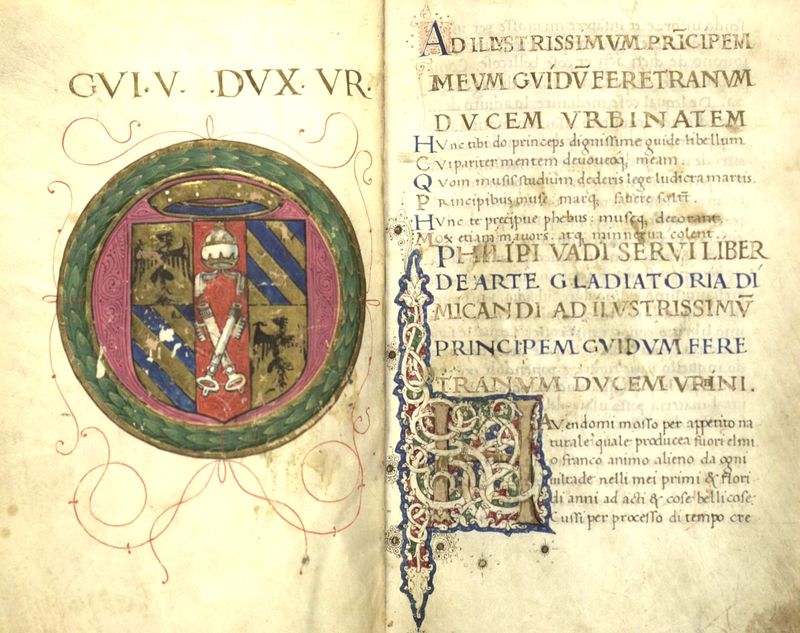 GVI·V· ·DVX·VR·
AD ILLVSTRISSIMVM PRĪCIPEM
MEVM GVIDŪ FERETRANVM
DVCEM VRBINATEM
Hunc tibi do princeps dignissime guide libellum
Cui pariter mentem deuoueoq; meam.
Quom musis studium dederis lege ludicra martis.
Principibus muse: marq; satiere solent.
Hunc te precipue phebus: museq; decorant,
Mox etiam mauors: atq; minnerua colent.
PHILIPI VADI SERVI LIBER
DE ARTE GLADIATORIA DI
MICANDI AD ILVSTRISSIMŪ
PRINCIPEM GVIDVM FERE
TRANVM DVCEM VRBINI.
HAVendomi mosso per appetito na
turale quale producea fuori el mi
o franco animo alieno da ogni
uiltade nelli mei primi & flori
di anni ad acti & cose bellicose:
Cussi per processo di tempo cre